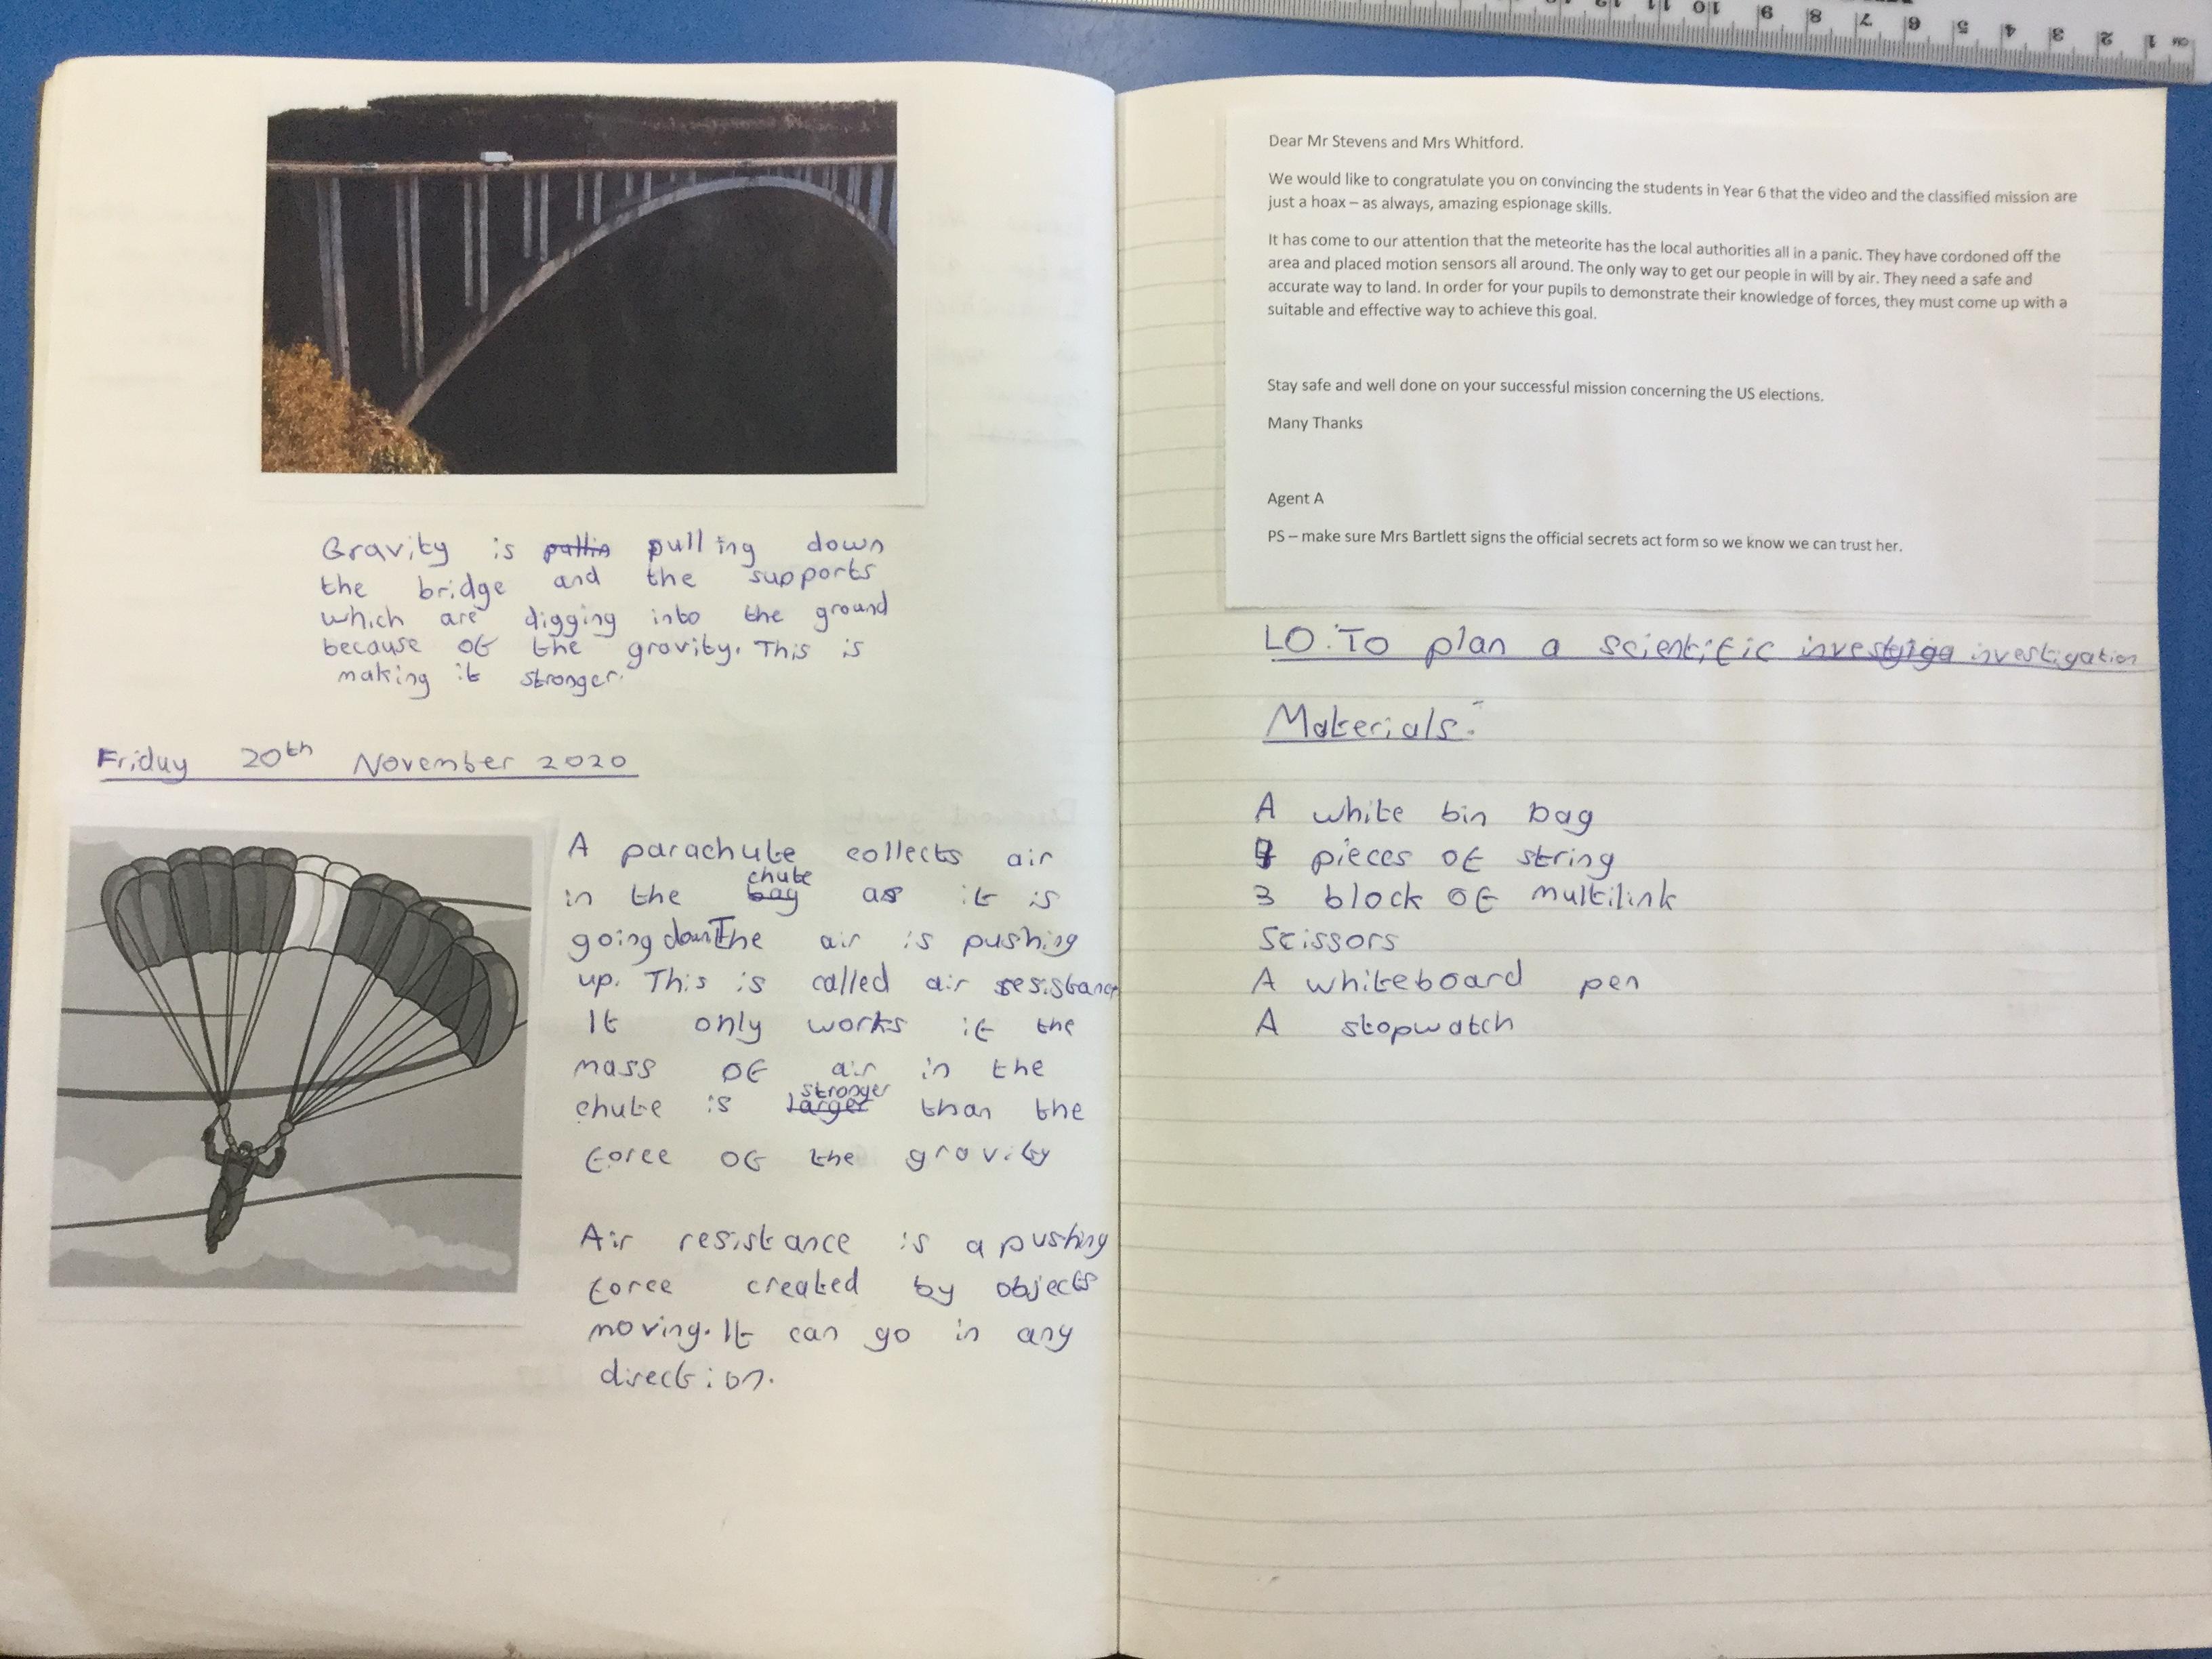 Gravity is pullin pulling down
the bridge and the supports
which are digging into the ground
because of the gravity. This is
making it stronger.
Friday 20th November 2020
A parachute collects air
in the bag chute as it is
going down The air is pushing
up. This is called air resistance
It only works if the
mass of air in the
chute is larger stronger than the
force of the gravity
Air resistance is a pushing
force created by objects
moving. It can go in any
direction.
12 11 10 9 8 7 6 5 4 3 2 1 CM
Dear Mr Stevens and Mrs Whitford.
We would like to congratulate you on convincing the students in Year 6 that the video and the classified mission are
just a hoax – as always, amazing espionage skills.
It has come to our attention that the meteorite has the local authorities all in a panic. They have cordoned off the
area and placed motion sensors all around. The only way to get our people in will by air. They need a safe and
accurate way to land. In order for your pupils to demonstrate their knowledge of forces, they must come up with a
suitable and effective way to achieve this goal.
Stay safe and well done on your successful mission concerning the US elections.
Many Thanks
Agent A
PS – make sure Mrs Bartlett signs the official secrets act form so we know we can trust her.
LO: To plan a scientific investigation
Materials:
A white bin bag
pieces of string
3 block of multilink
Scissors
A whiteboard pen
A stopwatch